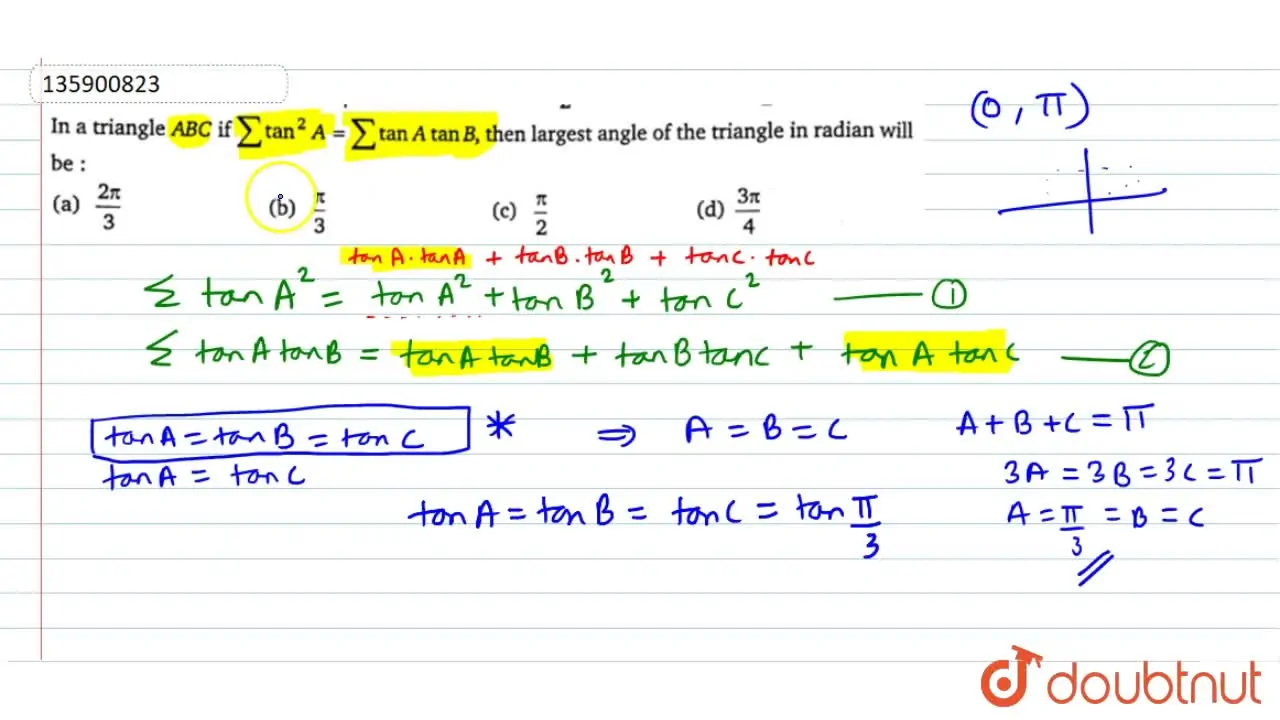 135900823
(0, π)
In a triangle ABC if ∑ tan² A = ∑ tan A tan B, then largest angle of the triangle in radian will
be :
(a) 2π/3 (b) π/3 (c) π/2 (d) 3π/4
tanA·tanA + tanB·tanB + tanC·tanC
∑ tan A² = tan A² + tan B² + tan C² —— ①
∑ tanA tanB = tanA tanB + tanB tanC + tan A tan C —— ②
tanA = tan B = tan C * ⇒ A = B = C A + B + C = π
tanA = tanC 3A = 3B = 3C = π
tanA = tan B = tanC = tan π/3 A = π/3 = B = C
doubtnut